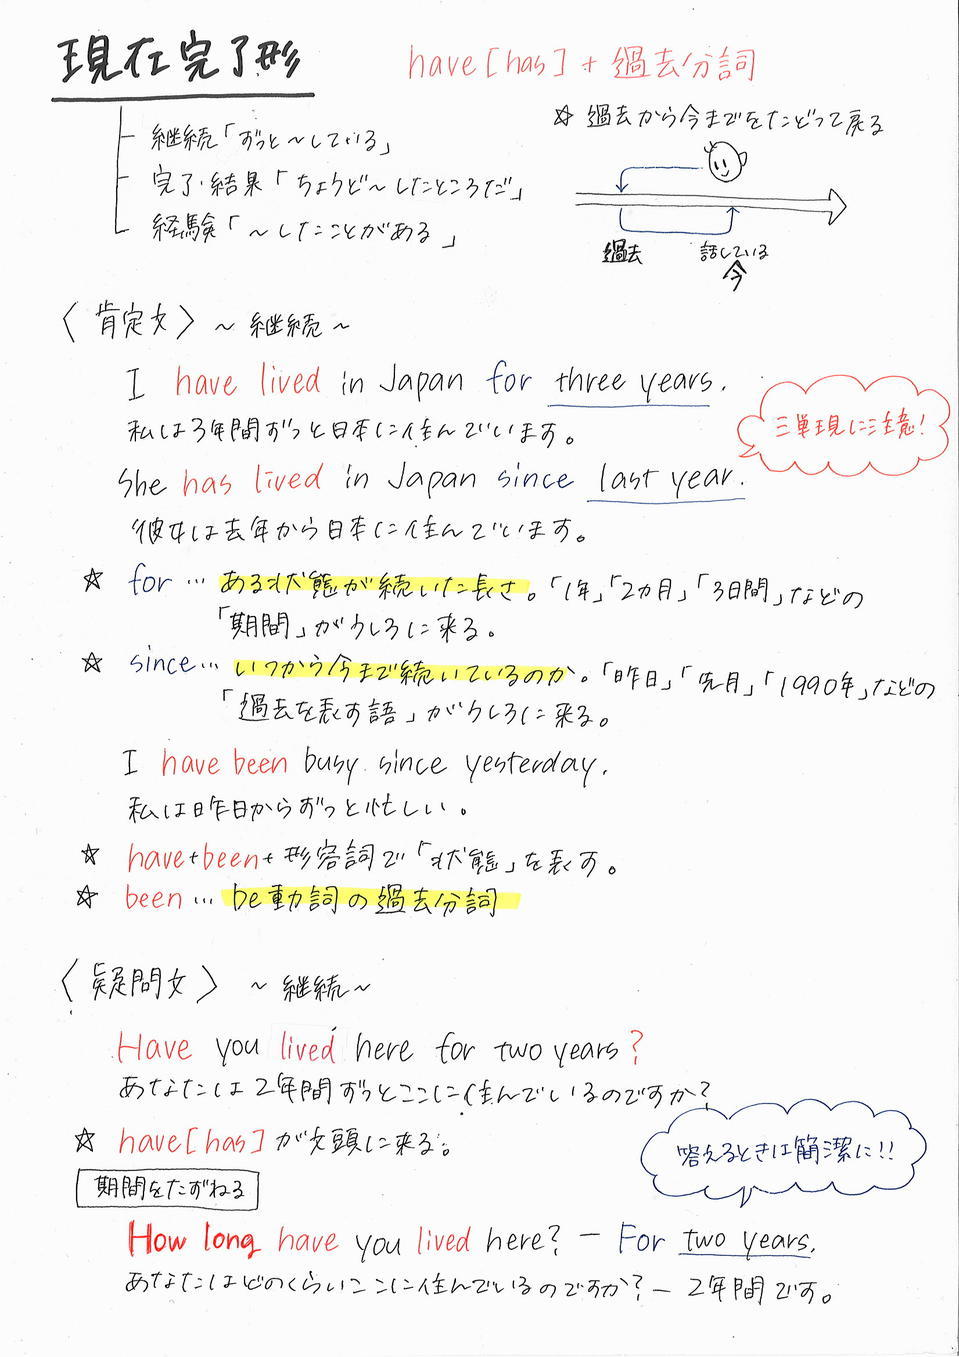 現在完了形
have[has]+過去分詞
継続「ずっと〜している」
完了・結果「ちょうど〜したところだ」
経験「〜したことがある」
☆ 過去から今までをたどって戻る
過去
話している
今
〈肯定文〉〜継続〜
I have lived in Japan for three years.
私は3年間ずっと日本に住んでいます。
三単現に注意!
She has lived in Japan since last year.
彼女は去年から日本に住んでいます。
☆ for … ある状態が続いた長さ。「1年」「2ヵ月」「3日間」などの
「期間」がうしろに来る。
☆ since… いつから今まで続いているのか。「昨日」「先月」「1990年」などの
「過去を表す語」がうしろに来る。
I have been busy since yesterday.
私は昨日からずっと忙しい。
☆ have+been+形容詞で「状態」を表す。
☆ been … be動詞の過去分詞
〈疑問文〉〜継続〜
Have you lived here for two years?
あなたは2年間ずっとここに住んでいるのですか?
☆ have[has]が文頭に来る。
答えるときは簡潔に!!
期間をたずねる
How long have you lived here? ー For two years.
あなたはどのくらいここに住んでいるのですか? ー 2年間です。